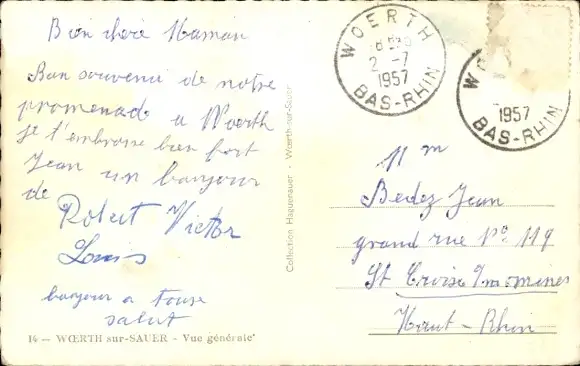 Bien cheré Maman
Bon souvenir de notre
promenade a Woerth
je t'embrasse bien fort
Jean un bonjour
de
Robert Victor
Louis
bonjour a touse
salut
14 — WŒRTH sur-SAUER - Vue générale
Collection Haguenauer - Wœrth-sur-Sauer
WOERTH
2 -7
1957
BAS-RHIN
1957
BAS-RHIN
Mm
Bedez Jean
grand rue No 119
St Croise / mines
Haut-Rhin